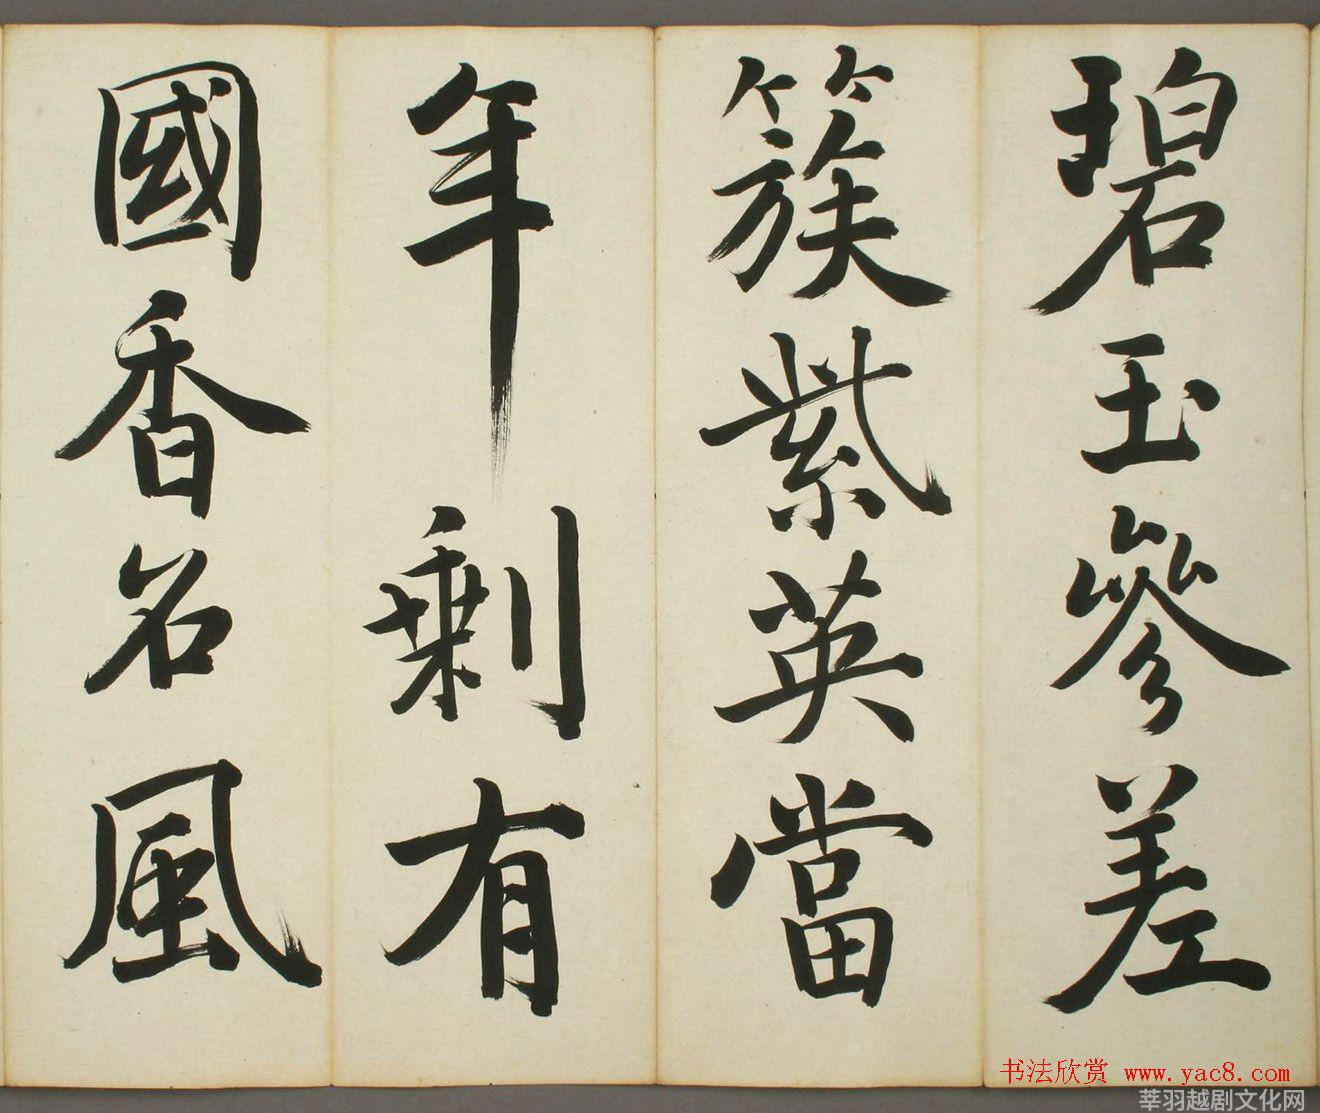 碧玉參差
簇紫英當
年剩有
國香名風
书法欣赏 www.yac8.com
莘羽越剧文化网